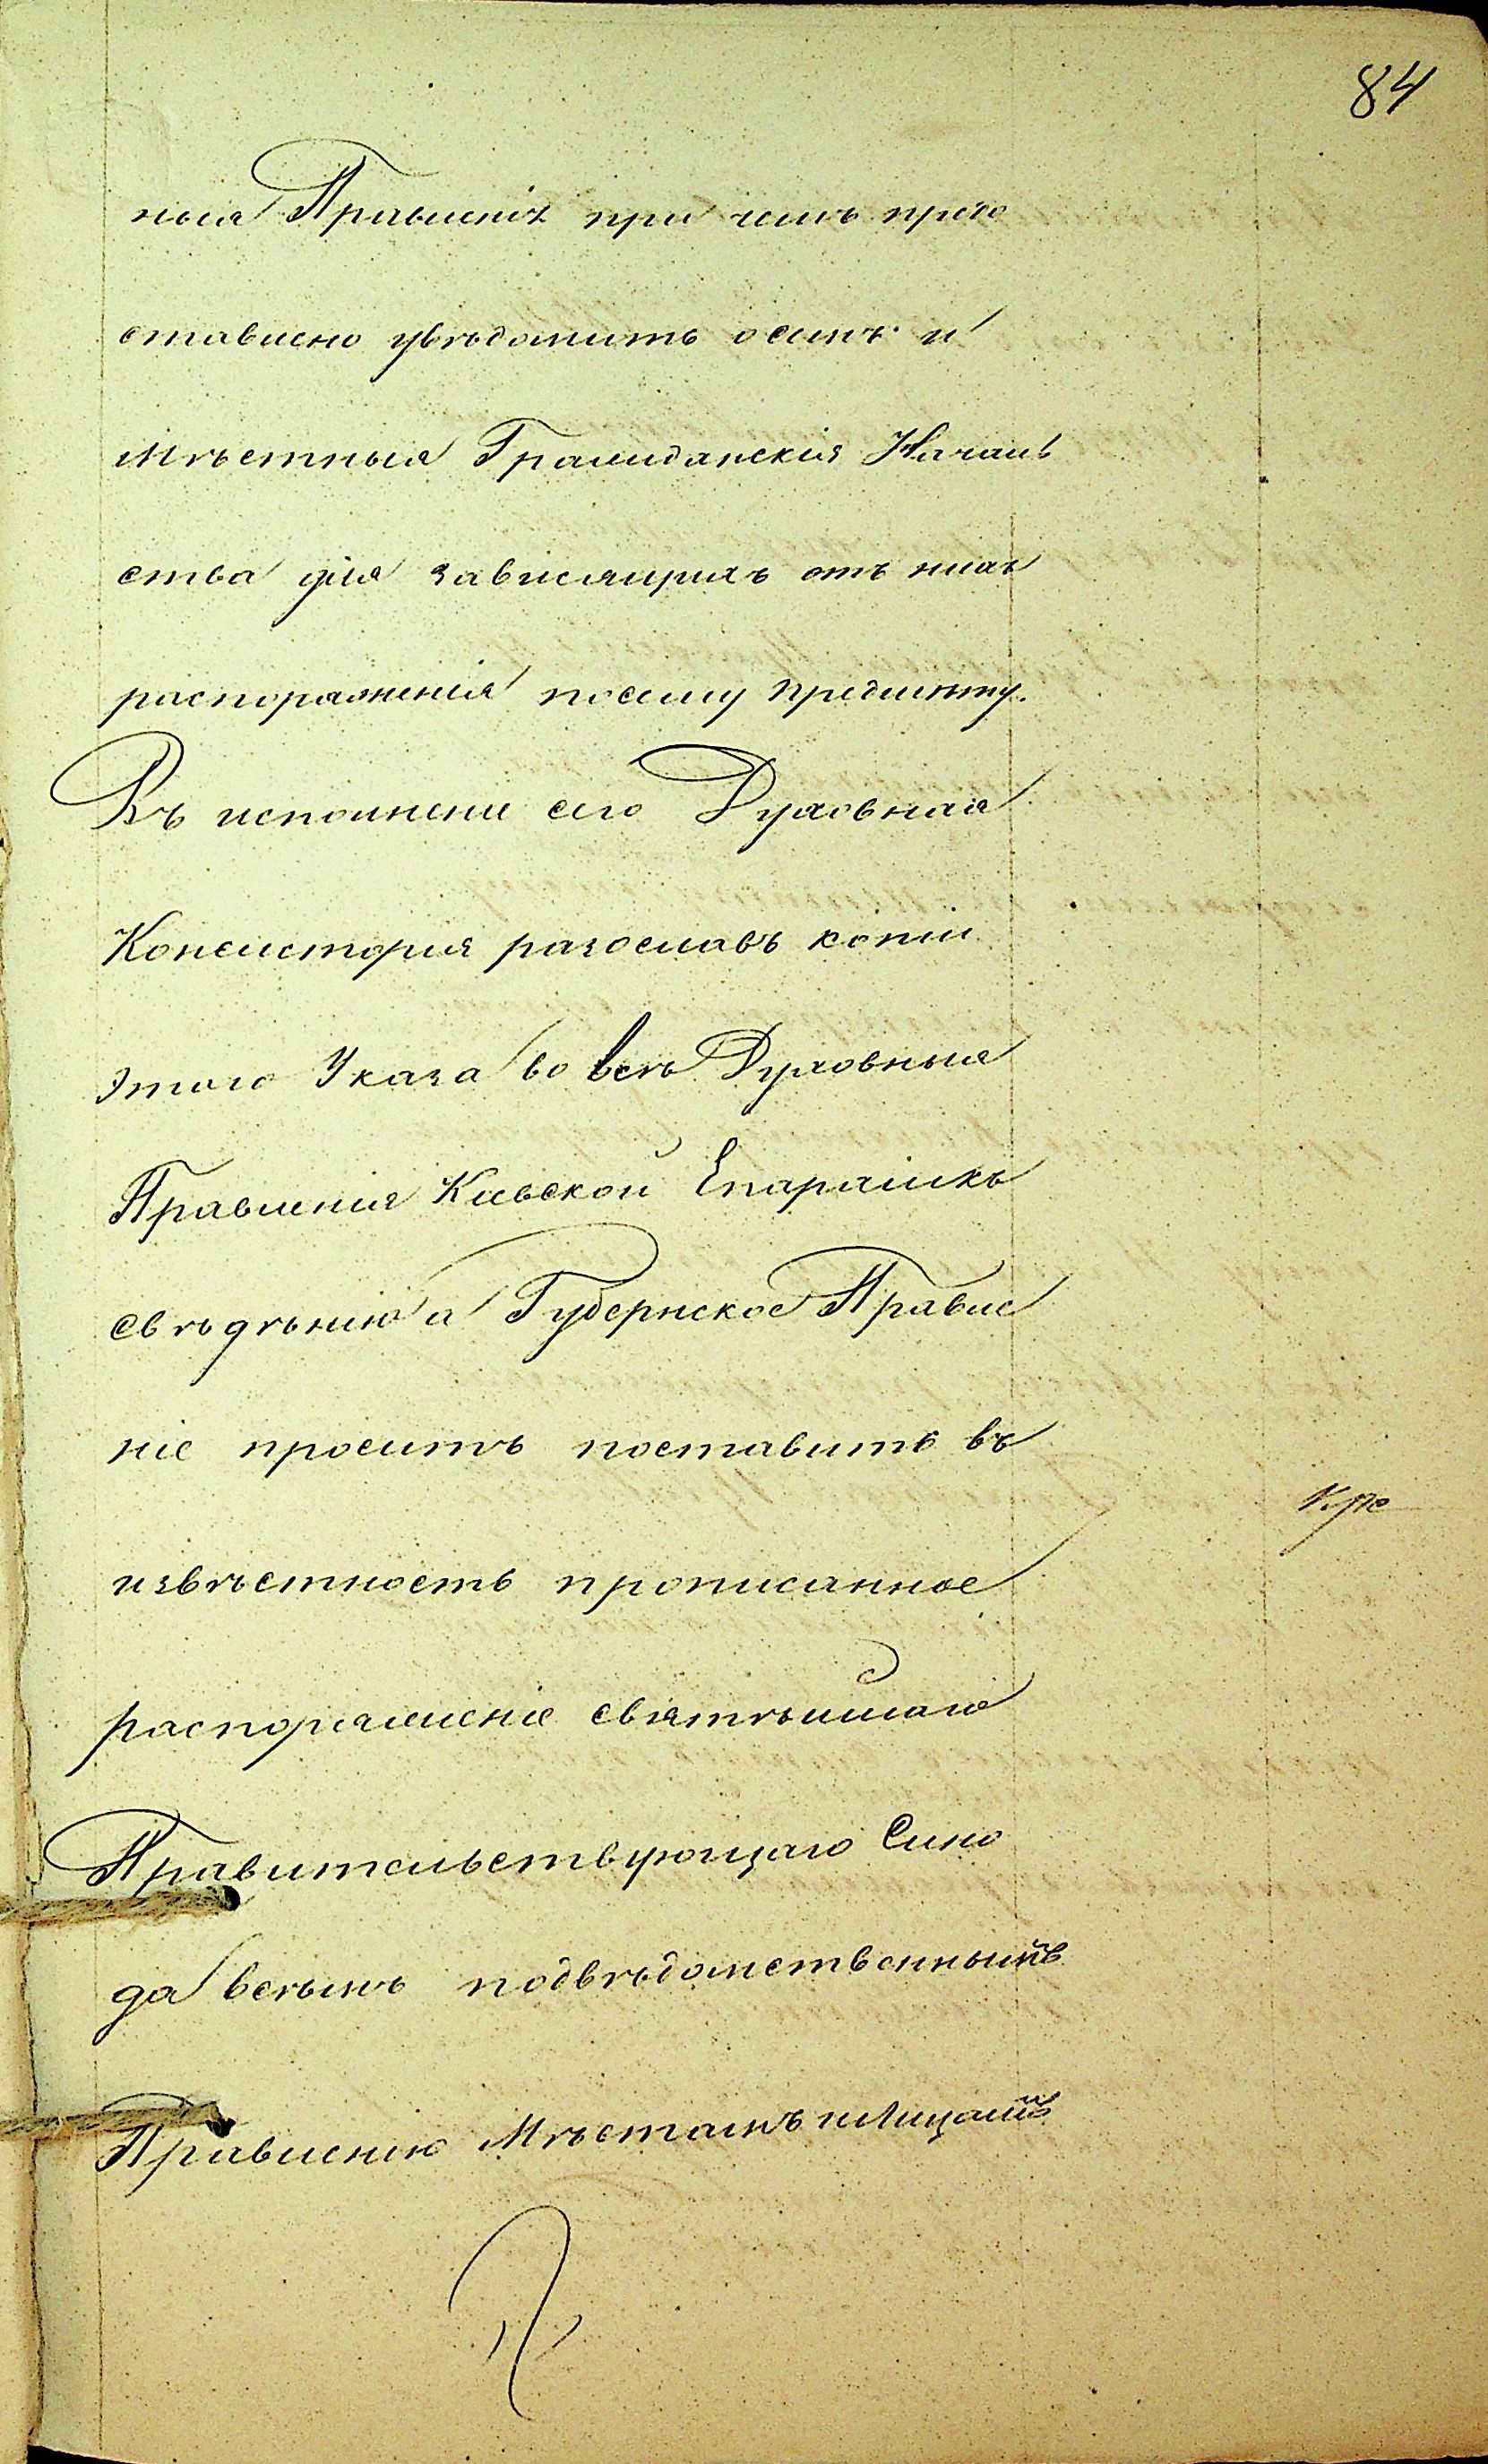 84
ныя Правленія при чемъ предо
ставлено увѣдомить осемъ и
мѣстныя Гражданскія Началь
ства для зависящихъ отъ нихъ
распоряженія посему предмѣту.
Въ исполнение сего Духовная
Консисторія разославъ копіи
этого Указа во всѣ Духовныя
Правленія Кіевской Епархіи къ
свѣдѣнію а Губернское Правле
ніе проситъ поставить въ
извѣстность прописанное
распоряженіе святѣйшаго
Правительствующаго Сино
да всѣмъ подвѣдомственнымъ
Правленію Мѣстамъ и Лицамъ